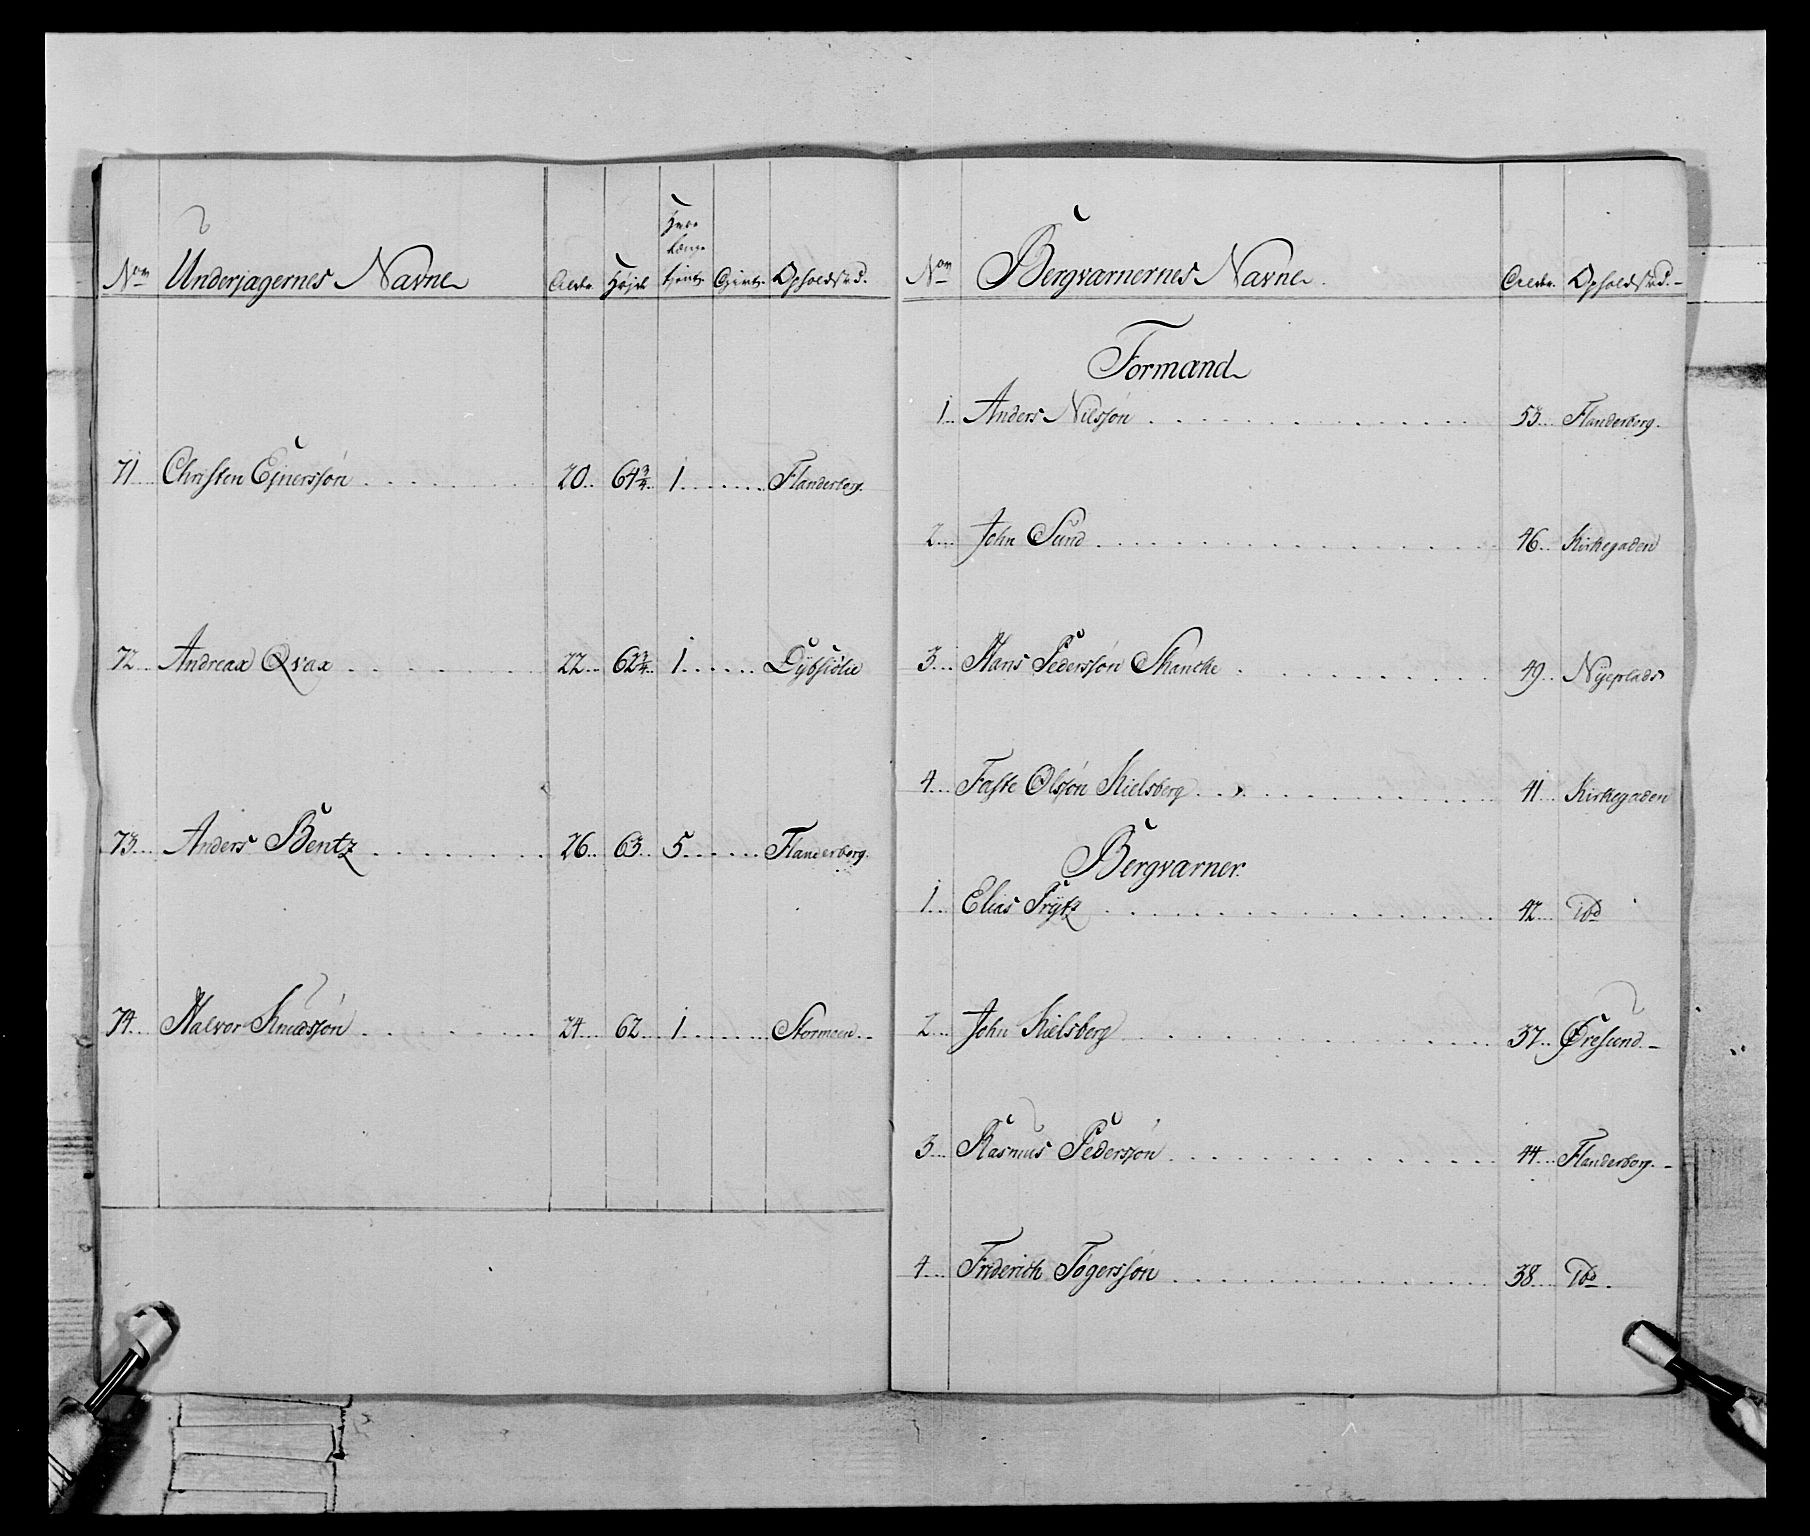 Nom Underjagernes Navne Alder. Højde Hvor længe tjent Givt. Opholdsted.
71 Christen Ejnerssøn 20 64 3/4 1 Flanderborg.
72 Andreax Qvax 22 62 3/4 1 Dybsiøe
73 Anders Bentz 26 63 5 Flanderborg.
74 Halvor Knudssøn 24 62 1 Stormoen
Nom Bergværnernes Navne Alder. Opholdsted.
Formand
1 Anders Nilssøn 53 Flanderborg.
2 John Sund 46 Kirkegaden
3 Hans Pederssøn Skancke 49 Nyeplads
4 Faste Olssøn Kielsberg 41 Kirkegaden
Bergværner.
1 Elias Trÿtz 42 Do
2 John Kielsberg 37 Øresund
3 Rasmus Pederssøn 44 Flanderborg.
4 Friderich Tøgerssøn 38 Do